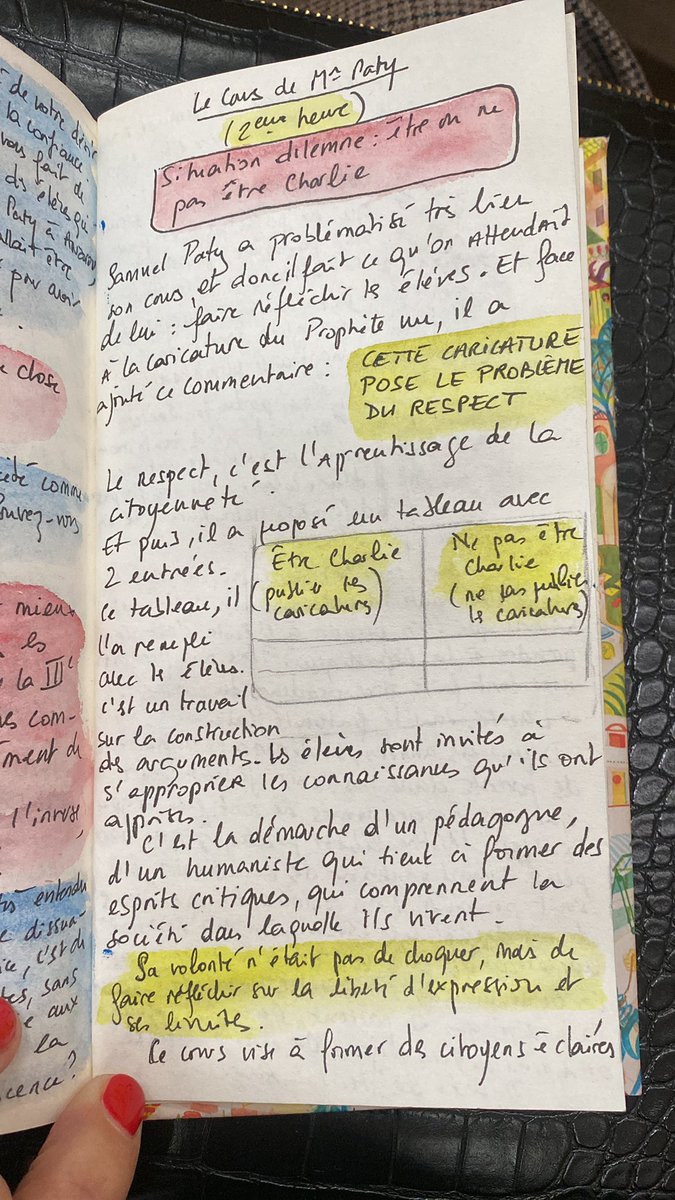 de votre
la confiance
vous fait de
des élèves qui
Paty à
allait être
pour avoir
close
comme
ouvez-vous
mieux
les
la IIIe
com-
ment de
l'inverse,
entendu
dissua-
c'est du
tes, sans
aux
la
cence?
Le cours de Mr Paty
(2ème heure)
Situation dilemne : être ou ne
pas être Charlie
Samuel Paty a problématisé très bien
son cours, et donc il fait ce qu'on ATTENDAIT
de lui : faire réfléchir les élèves. Et face
à la caricature du Prophète nu, il a
ajouté ce commentaire :
CETTE CARICATURE
POSE LE PROBLÈME
DU RESPECT
Le respect, c'est l'Aprentissage de la
citoyenneté.
Et puis, il a proposé un tableau avec
2 entrées.
Être Charlie
(publier les
caricatures)
Ne pas être
Charlie
(ne pas publier
les caricatures)
Ce tableau, il
l'a rempli
avec les élèves.
c'est un travail
sur la construction
des arguments. Les élèves sont invités à
s'approprier les connaissances qu'ils ont
apprises.
C'est la démarche d'un pédagogue,
d'un humaniste qui tient à former des
esprits critiques, qui comprennent la
société dans laquelle ils vivent.
Sa volonté n'était pas de choquer, mais de
faire réfléchir sur la liberté d'expression et
ses limites.
Ce cours vise à former des citoyens éclairés